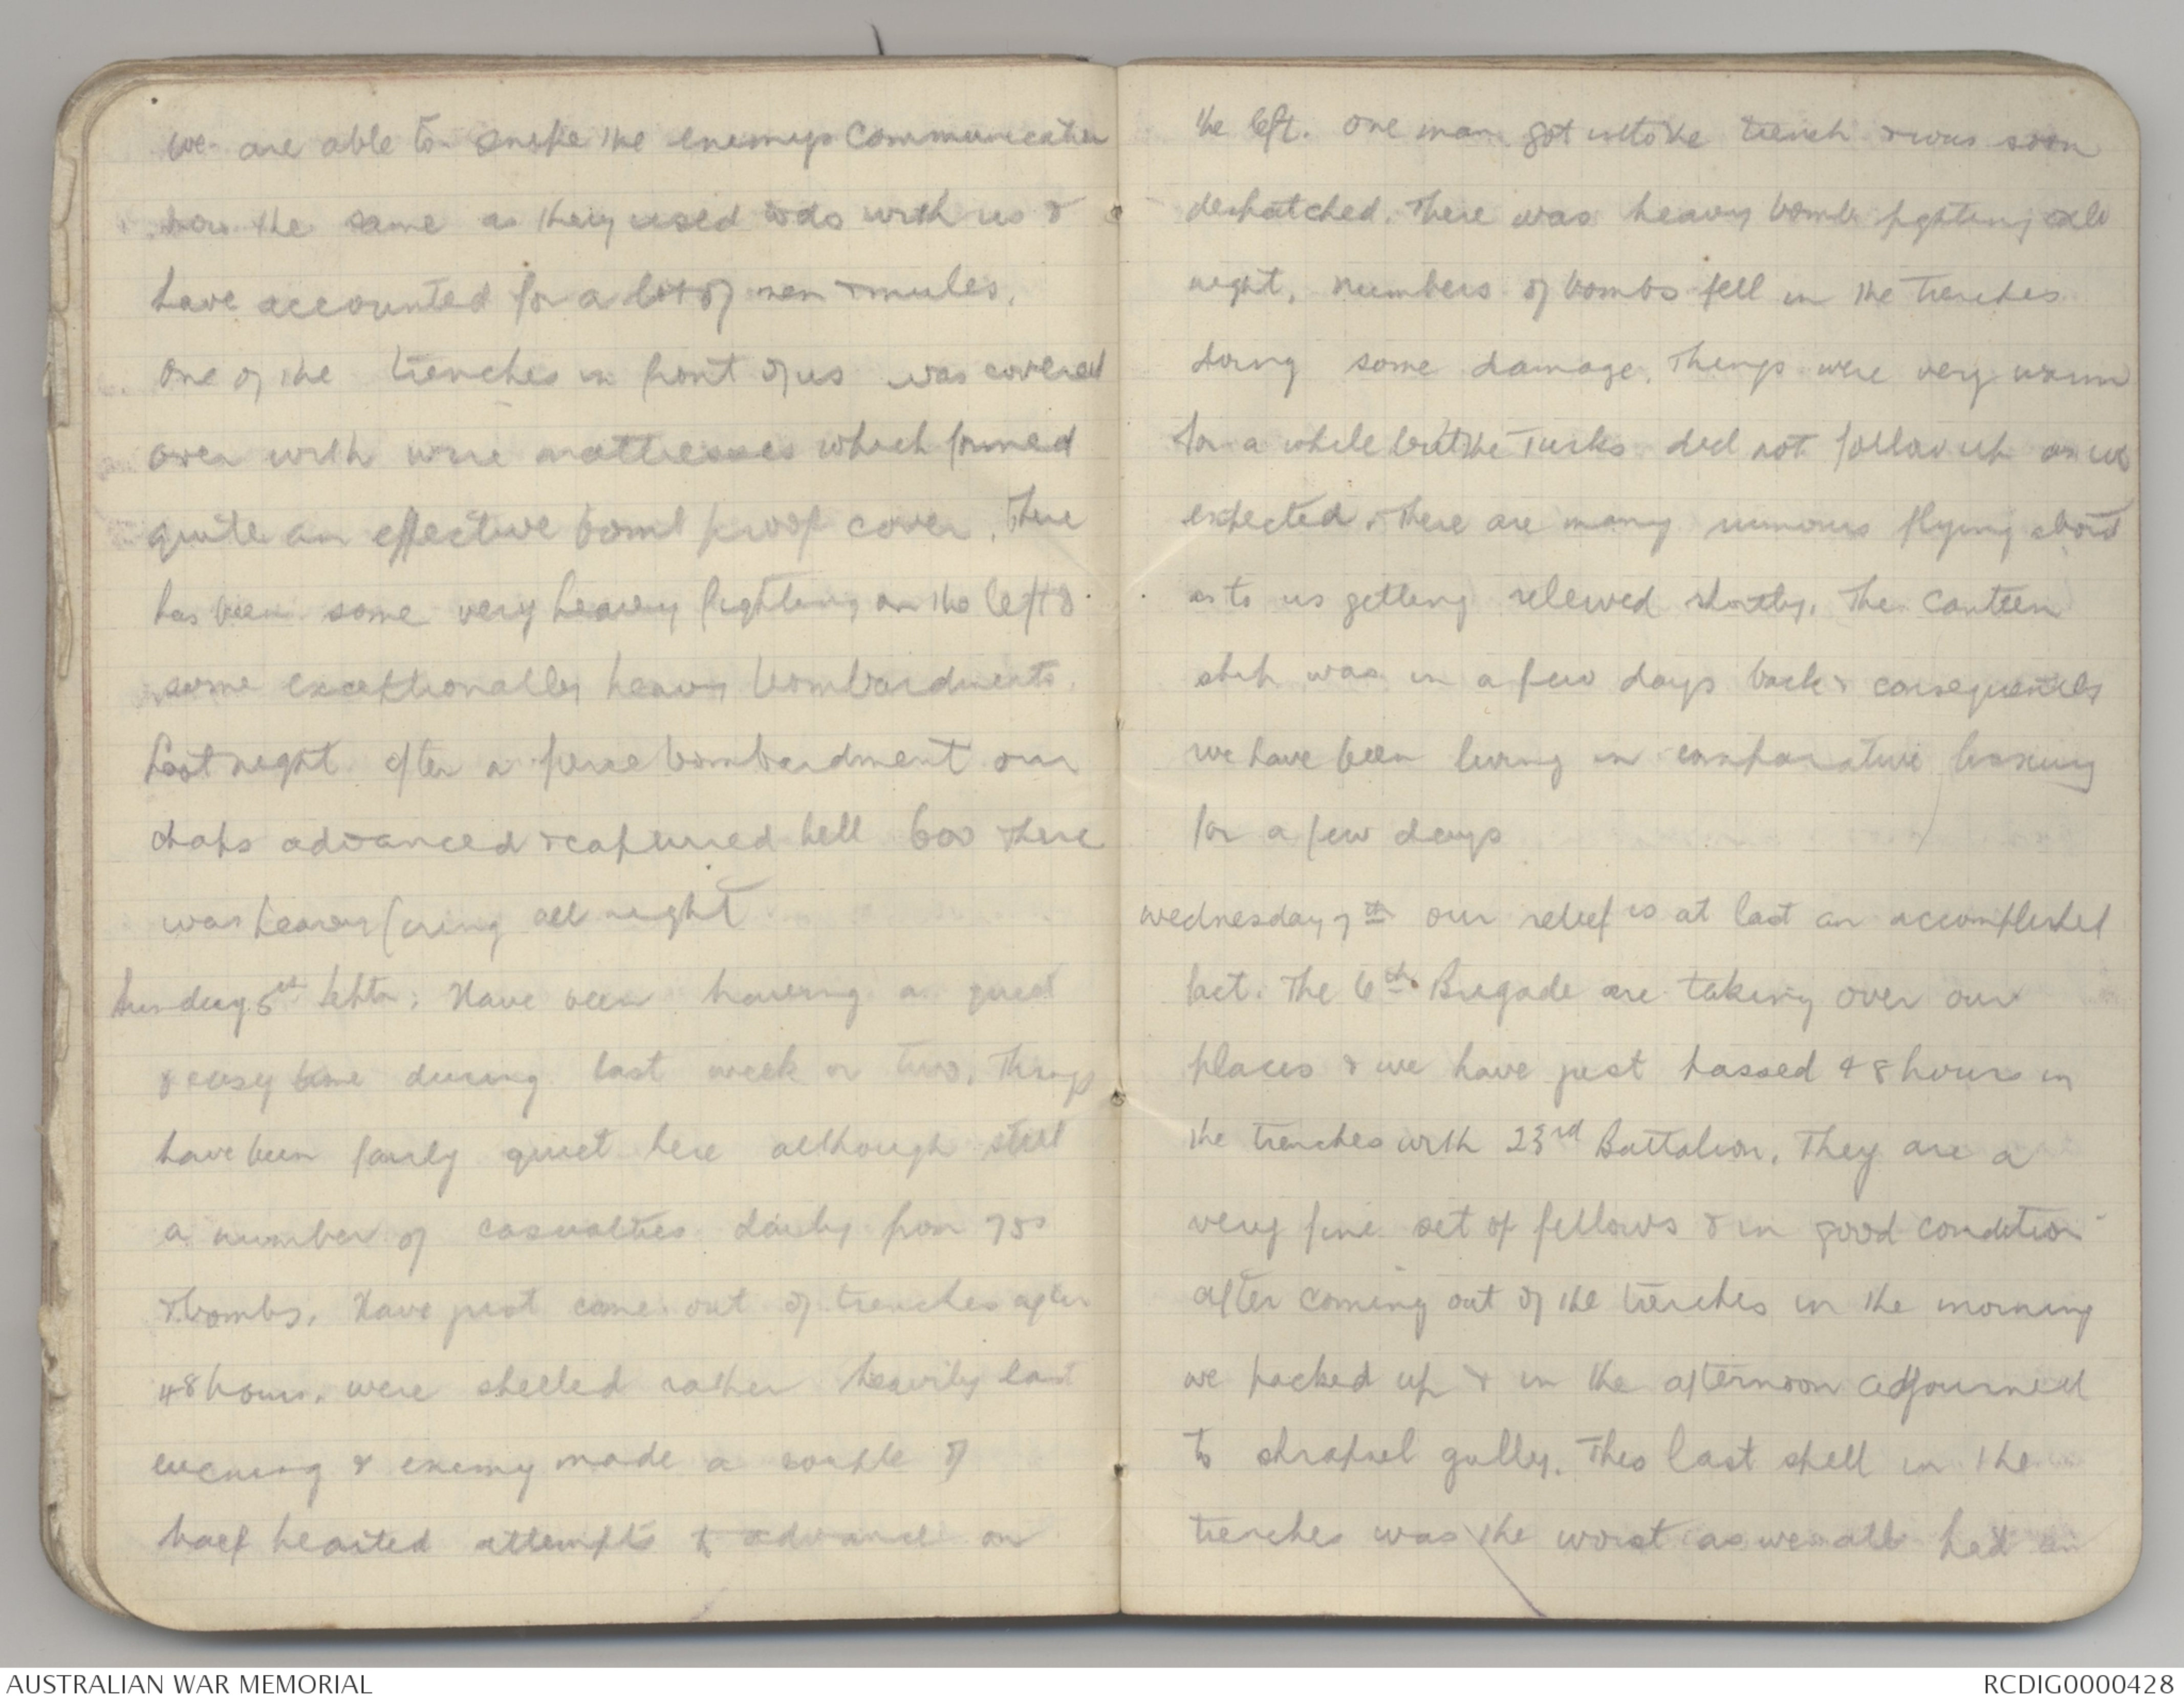 we are able to snipe the enemys communication
now the same as they used to do with us &
have accounted for a lot of men & mules.
One of the trenches in front of us was covered
over with wire mattresses which formed
quite an effective bomb proof cover. There
has been some very heavy fighting on the left &
some exceptionally heavy bombardments.
Last night after a bombardment our
chaps advanced & captured hill 60 There
was heavy firing all night
Sunday 5th Septr. Have been having a quiet
& easy time during last week or two. Things
have been fairly quiet here although still
a number of casualties daily from 75s
& bombs. Have just come out of trenches after
48 hours. were shelled rather heavily last
evening & enemy made a couple of
half hearted attempts to advance on
the left. One man got into the trench & was soon
despatched. There was heavy bomb fighting all
night, numbers of bombs fell in the trenches
doing some damage. Things were very warm
for a while but the Turks did not follow up as we
expected. There are many rumours flying about
as to us getting relieved shortly. The Canteen
ship was in a few days back & consequently
we have been living in comparative luxury
for a few days
Wednesday 7th our relief is at last an accomplished
fact. The 6th Brigade are taking over our
places & we have just passed 48 hours in
the trenches with 23rd Battalion. They are a
very fine set of fellows & in good condition
after coming out of the trenches in the morning
we packed up & in the afternoon adjourned
to shrapnel gully. This last spell in the
trenches was the worst as we all had an
AUSTRALIAN WAR MEMORIAL
RCDIG0000428